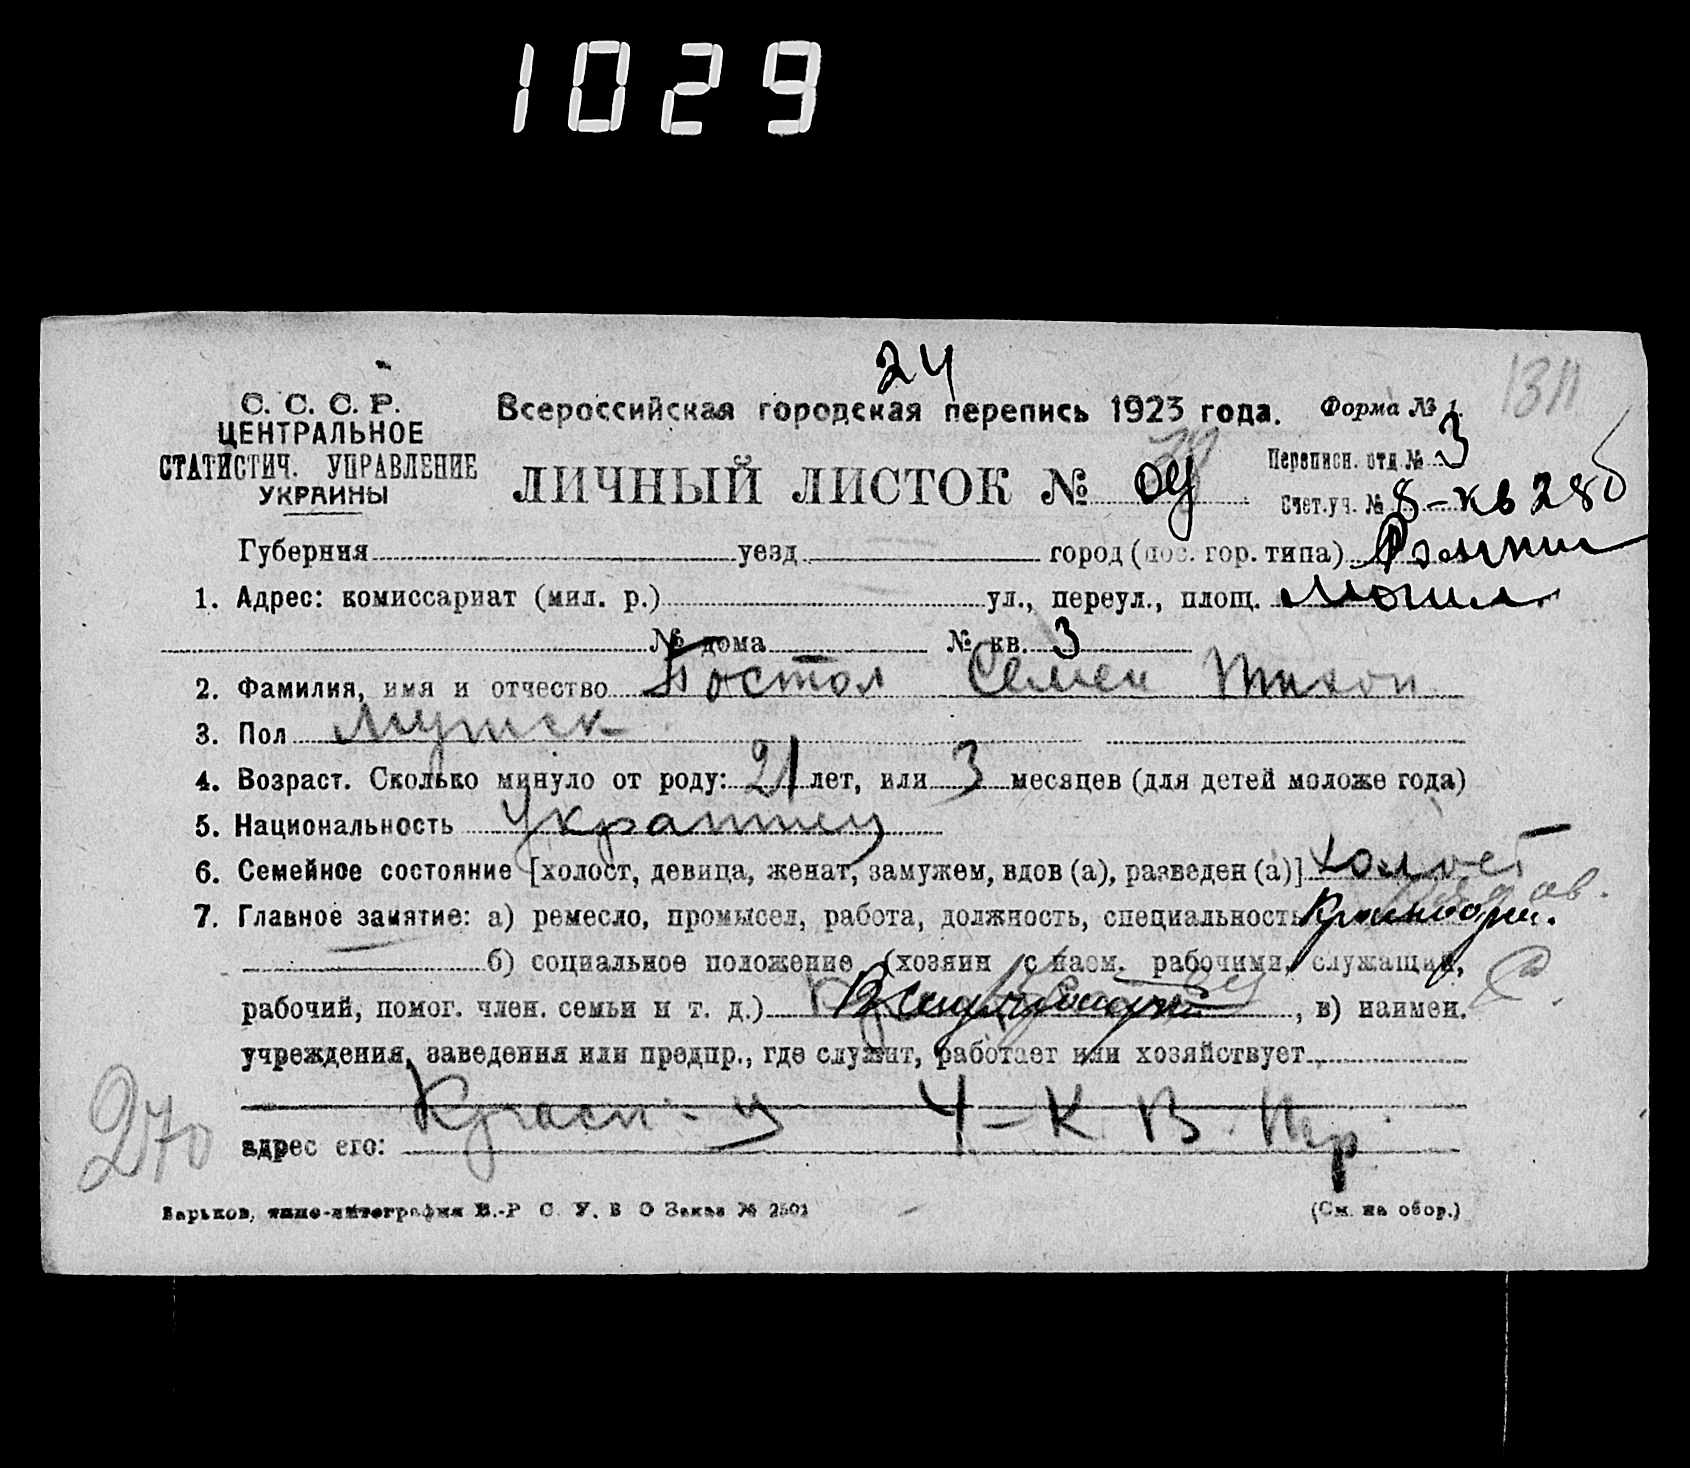 1029
24
1311
С. С. С. Р.
ЦЕНТРАЛЬНОЕ
СТАТИСТИЧ. УПРАВЛЕНИЕ
УКРАИНЫ
Всероссийская городская перепись 1923 года.
Форма № 1.
ЛИЧНЫЙ ЛИСТОК №
Переписн. отд № 3
Счет.уч. № 8-кв 28
Губерния уезд город (пос. гор. типа)
1. Адрес: комиссариат (мил. р.) ул., переул., площ.
№ дома № кв. 3
2. Фамилия, имя и отчество Бостол Семен Тихон
3. Пол мужск
4. Возраст. Сколько минуло от роду: 21 лет, или 3 месяцев (для детей моложе года)
5. Национальность
6. Семейное состояние [холост, девица, женат, замужем, вдов (а), разведен (а)] холост
7. Главное занятие: а) ремесло, промысел, работа, должность, специальность
б) социальное положение (хозяин с наем. рабочими, служащий, С.
рабочий, помог. член. семьи и т. д.) , в) наимен.
учреждения, заведения или предпр., где служит, работает или хозяйствует
адрес его:
270
Харьков, типо-литография В.-Р С. У. В О Заказ № 2501
(См. на обор.)